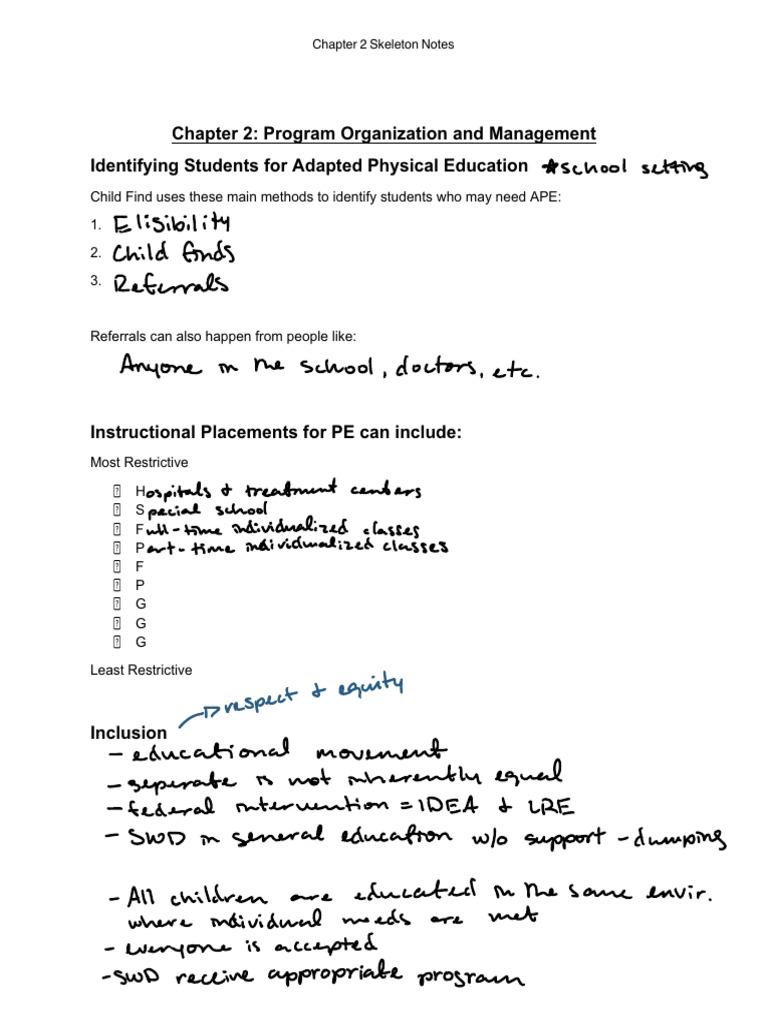 Chapter 2 Skeleton Notes
Chapter 2: Program Organization and Management
Identifying Students for Adapted Physical Education *school setting
Child Find uses these main methods to identify students who may need APE:
1. Eligibility
2. Child finds
3. Referrals
Referrals can also happen from people like:
Anyone in the school, doctors, etc.
Instructional Placements for PE can include:
Most Restrictive
Hospitals & treatment centers
Special school
Full-time individualized classes
Part-time individualized classes
F
P
G
G
G
Least Restrictive
respect & equity
Inclusion
- educational movement
- seperate is not inherently equal
- federal intervention = IDEA & LRE
- SWD in general education w/o support - dumping
- All children are educated in the same envir.
where individual needs are met
- everyone is accepted
- SWD receive appropriate program